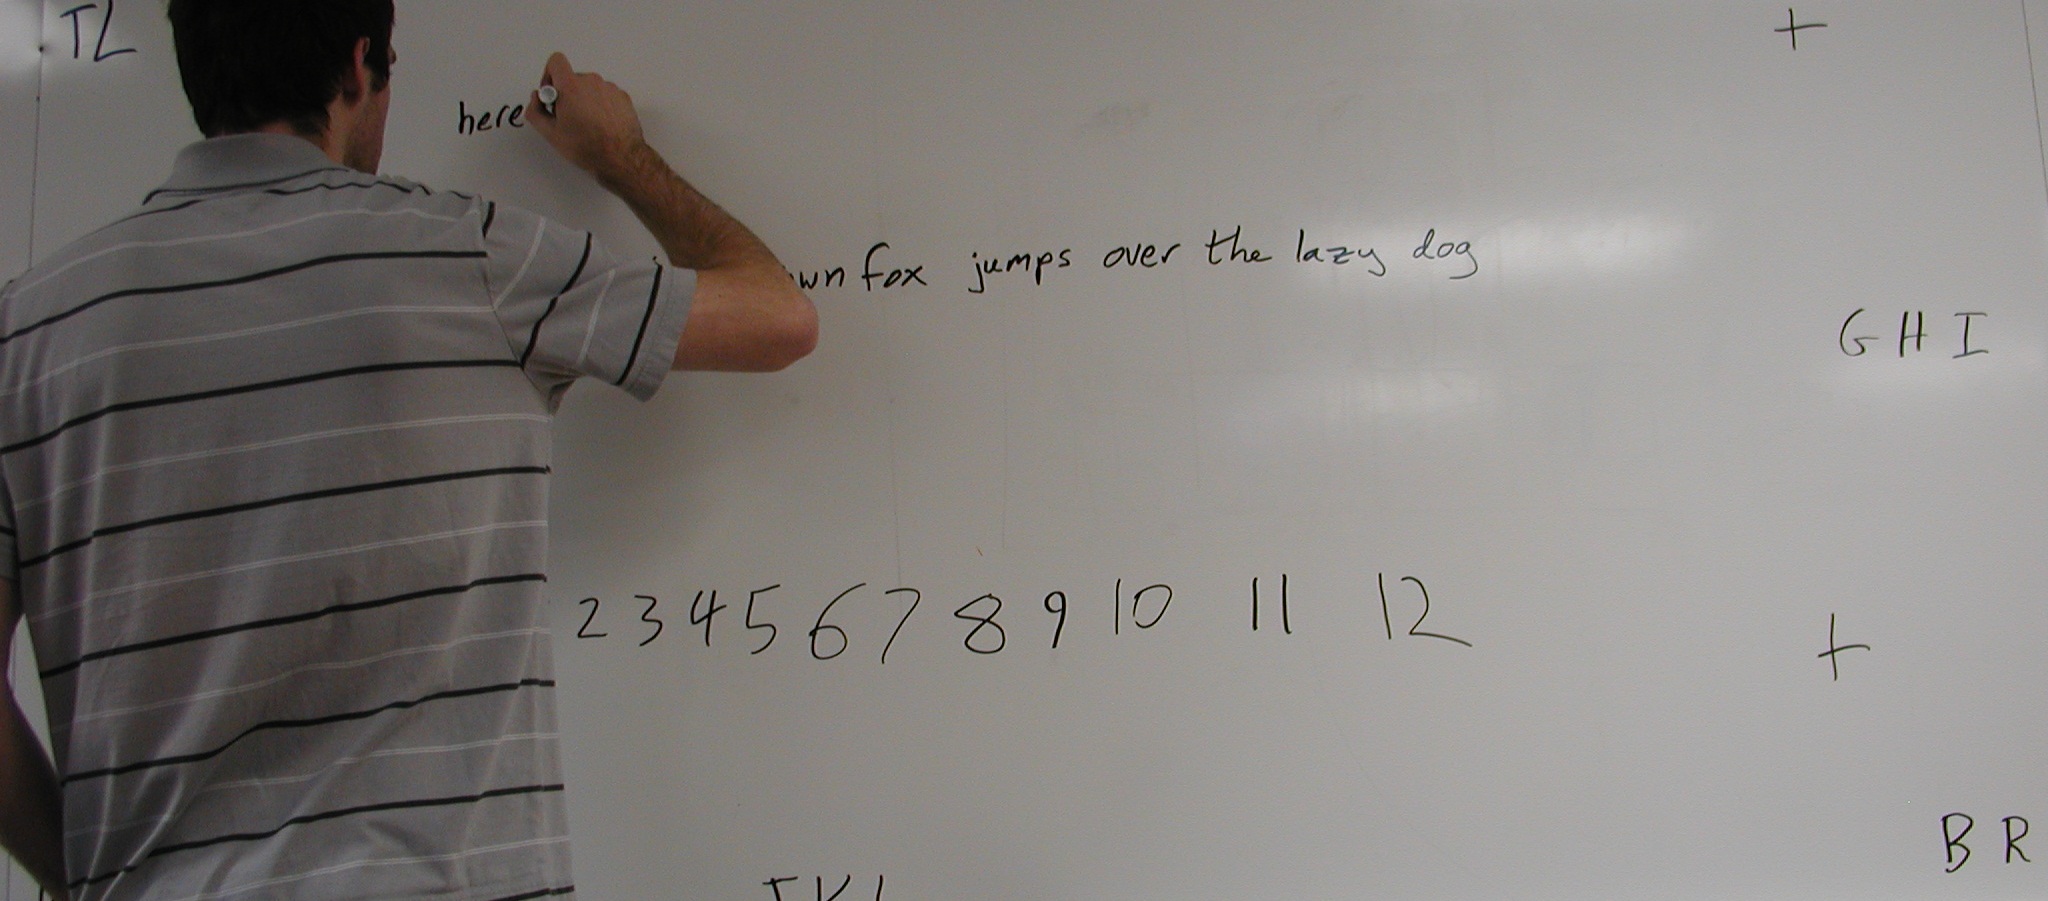 TL
+
here
wn fox jumps over the lazy dog
G H I
2 3 4 5 6 7 8 9 10 11 12
+
B R
J K L